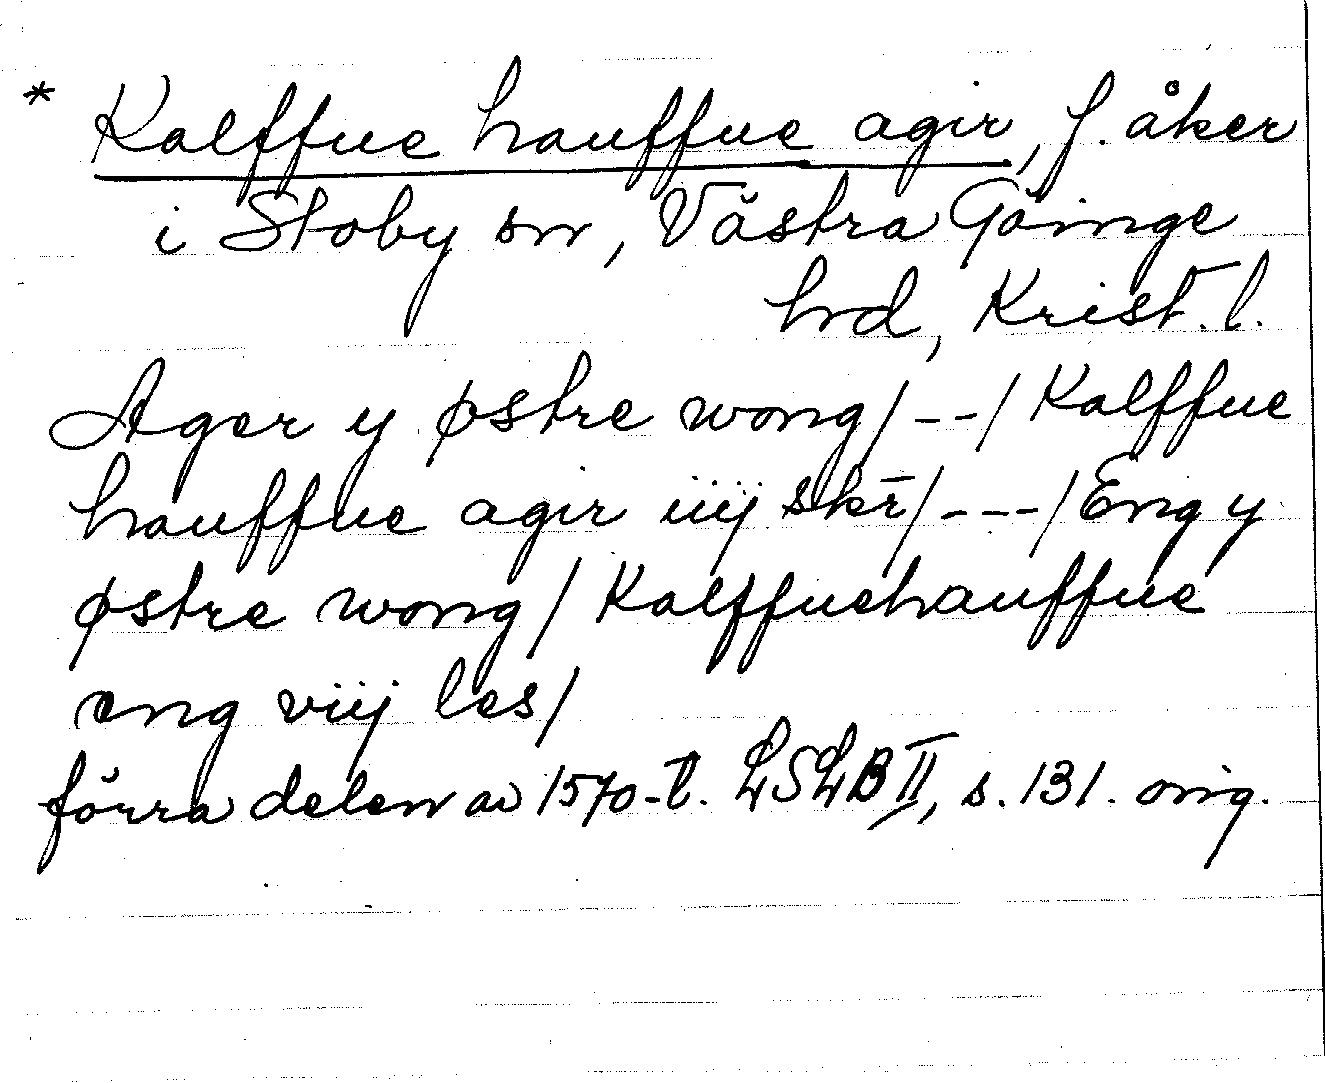 * Kalffue hauffue agir, f. åker
i Stoby sn, Västra Göinge
hd, Krist. l.
Ager y østre wong/--/Kalffue
hauffue agir iiij skr̄/---/Eng y
østre wong/Kalffuehauffue
eng viij les/
förra delen av 1570-t. LSLB II, s. 131. orig.